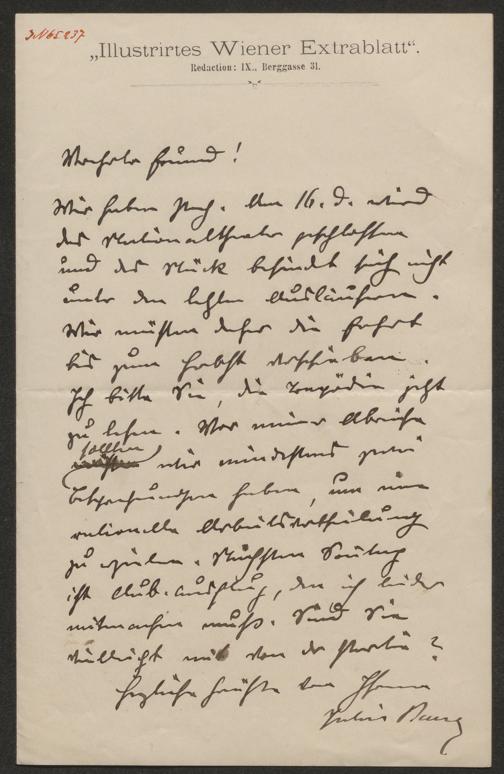 JN 65237
„Illustrirtes Wiener Extrablatt“.
Redaction: IX., Berggasse 31.
Verehrter Freund!
Wir haben Pech. Am 16. d. wird
das Nationaltheater geschlossen
und das Stück befindet sich nicht
unter den letzten Ausläufern.
Wir müssen daher die Fahrt
bis zum Herbst verschieben.
Ich bitte Sie, die Tragödie jetzt
zu lesen. Vor meiner Abreise
sollten
wir mindestens zwei
Besprechungen haben, um eine
rationelle Arbeitsvertheilung
zu erzielen. Nächsten Sonntag
ist Club-Ausflug, den ich leider
mitmachen muß. Sind Sie
vielleicht mit von der Partie?
Herzliche Grüße von Ihrem
Julius Bauer